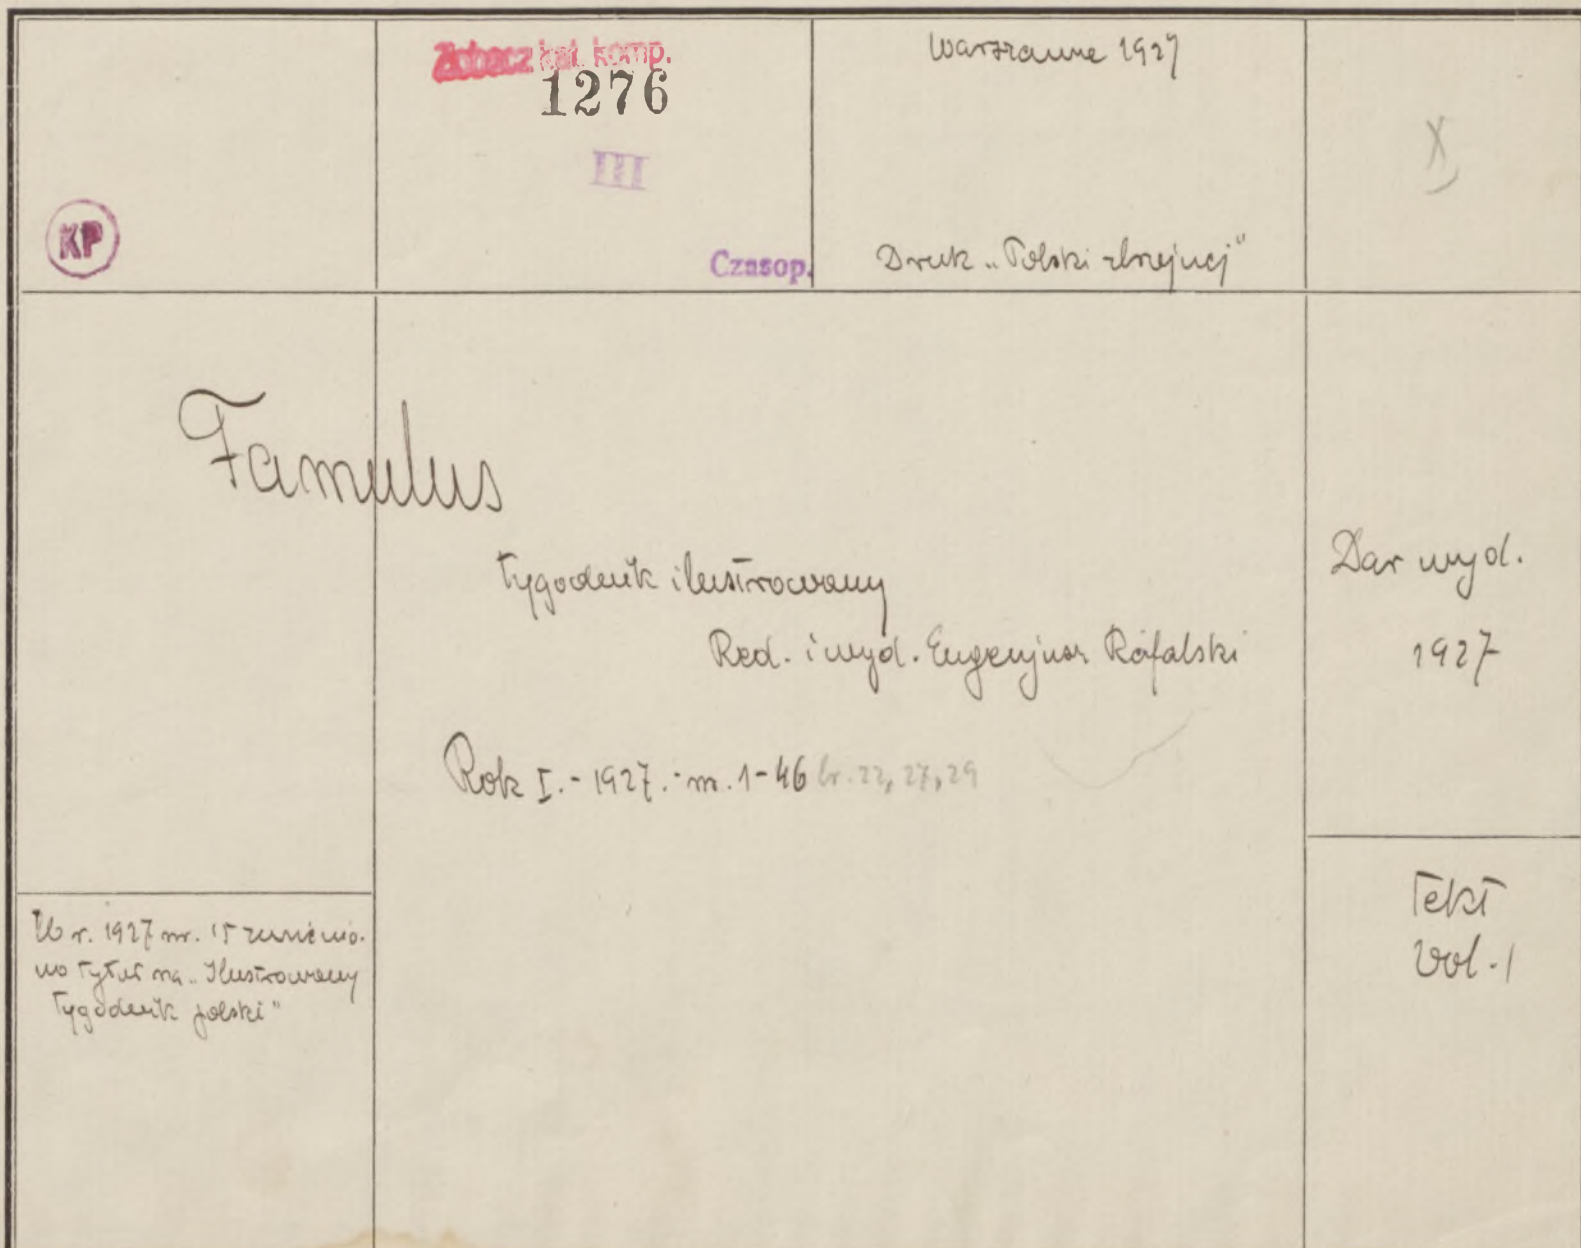 Zobacz kat. komp.
1276
III
Czasop.
KP
Warszawa 1927
Druk „Polski zbrojnej"
X
Famulus
tygodnik ilustrowany
Red. i wyd. Eugenjusz Rafalski
Rok I. - 1927. - nr. 1-46 br. 22, 27, 29
Dar wyd.
1927
W r. 1927 nr. 15 zmienio-
no tytuł na „Ilustrowany
tygodnik polski"
Tekt
Vol. 1